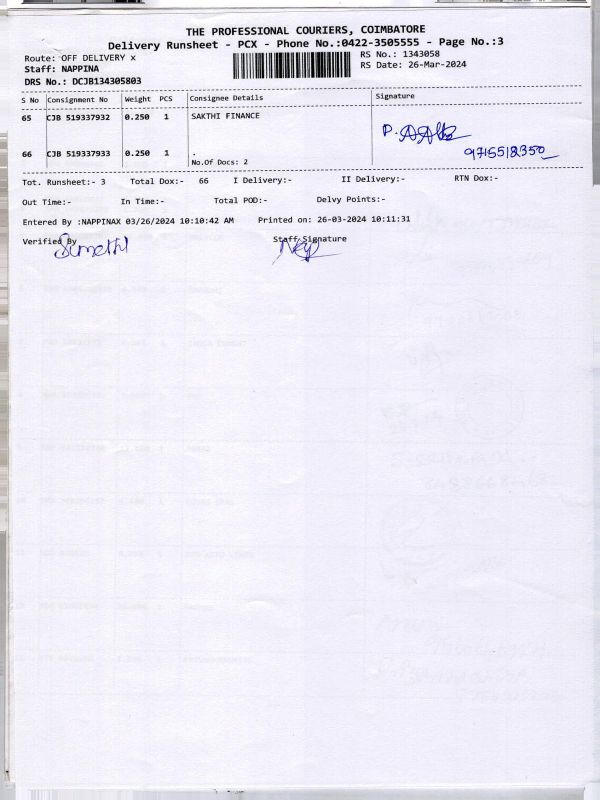 THE PROFESSIONAL COURIERS, COIMBATORE
Delivery Runsheet - PCX - Phone No.:0422-3505555 - Page No.:3
Route: OFF DELIVERY x RS No.: 1343058
Staff: NAPPINA RS Date: 26-Mar-2024
DRS No.: DCJB134305803
S No Consignment No Weight PCS Consignee Details Signature
65 CJB 519337932 0.250 1 SAKTHI FINANCE
P.
66 CJB 519337933 0.250 1 .
No.Of Docs: 2
Tot. Runsheet:- 3 Total Dox:- 66 I Delivery:- II Delivery:- RTN Dox:-
Out Time:- In Time:- Total POD:- Delvy Points:-
Entered By :NAPPINAX 03/26/2024 10:10:42 AM Printed on: 26-03-2024 10:11:31
Verified By Staff Signature